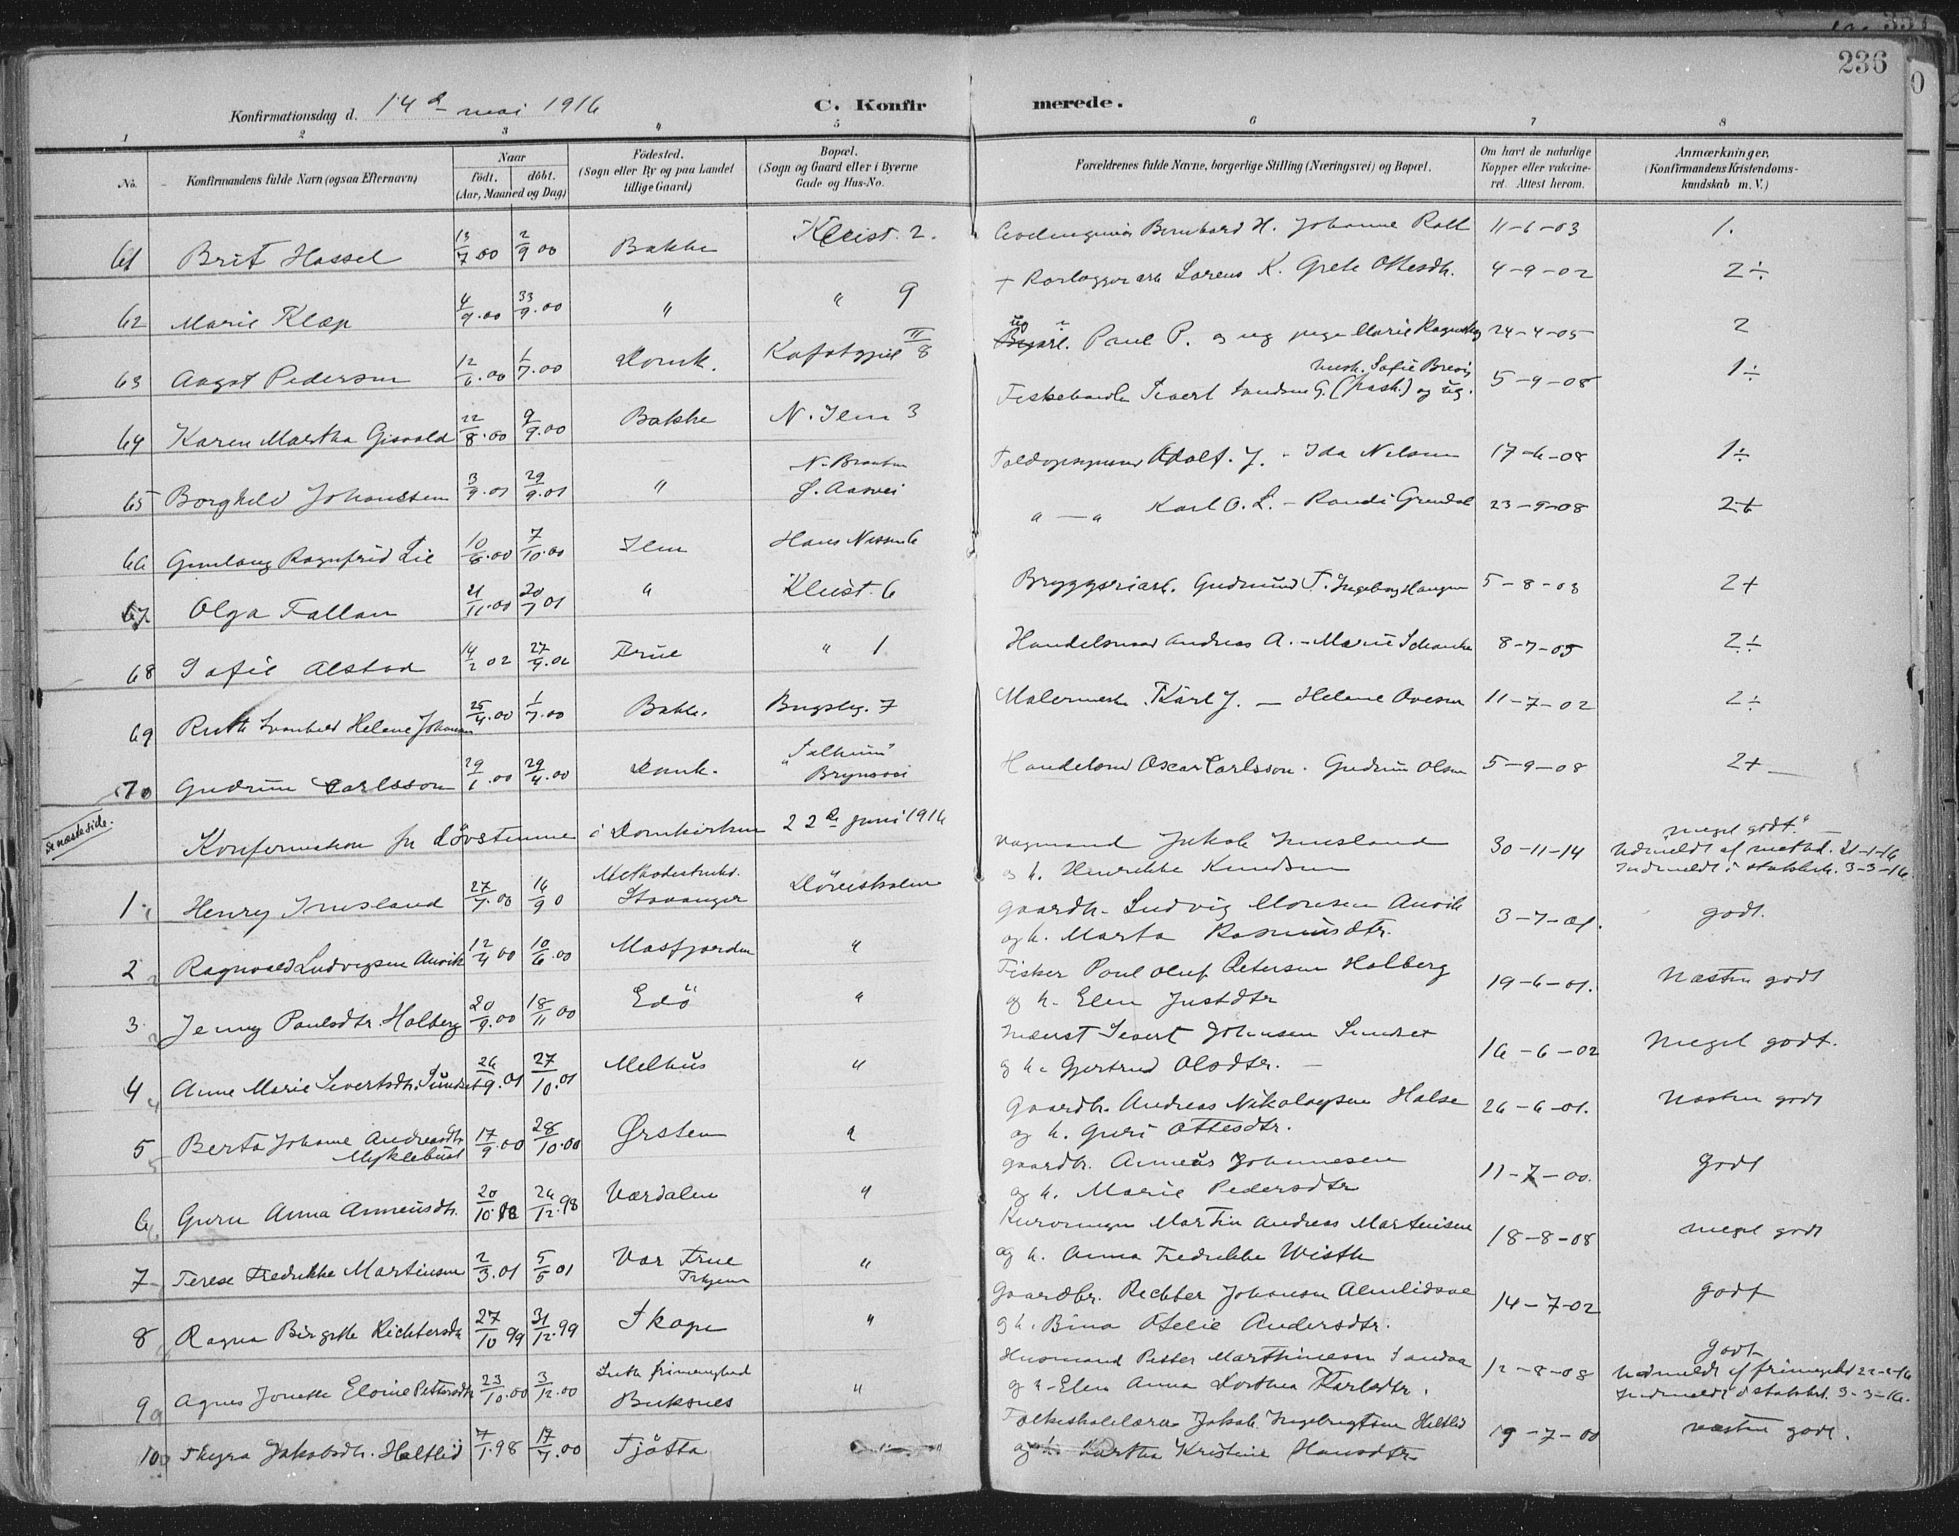 236
Konfirmationsdag d. 14de mai 1916
C. Konfirmerede.
1 2 3 4 5 6 7 8
No.
Konfirmandens fulde Navn (ogsaa Efternavn)
Naar
født. døbt.
(Aar, Maaned og Dag)
Fødested.
(Sogn eller By og paa Landet
tillige Gaard)
Bopæl.
(Sogn og Gaard eller i Byerne
Gade og Hus-No.
Forældrenes fulde Navne, borgerlige Stilling (Næringsvei) og Bopæl.
Om havt de naturlige
Kopper eller vakcine-
ret. Attest herom.
Anmærkninger.
(Konfirmandens Kristendoms-
kundskab m. V.)
61 Brit Hassel 13/7 00 2/9 00 Bakke 2. Bernhard H. Johanne 11-6-03 1.
62 Marie Klæp 4/9.00 /9.00 " " 9 Lorens K. Grete Ottesdtr. 4-9-02 2÷
63 Aagot Pedersen 12/6.00 1/7.00 Domk. II/8 Paul P. og ug pige Marie 24-4-05 2
64 Karen Martha Gisvold 22/8.00 9/9.00 Bakke N. Ilen 3 Sivert og ug. Sofie 5-9-08 1÷
65 Borghild Johansen 3/9.01 29/9.01 " Adolf J. - Ida Nilsen 17-6-08 1÷
66 Gunlaug Ragnfrid Lie 10/8.00 7/10.00 Ilen Hans Nissens 6 " — " Karl O. L. - Randi Grendal 23-9-08 2+
67 Olga Fallan 21/11.00 20/ 01 " 6 Bryggeriarb. Gudmund F. Ingeborg Haugen 5-8-03 2+
68 Sofie Alstad 14/2 02 27/ .02 Frue " 1 Andreas A. - Marie Schanke 8-7-05 2÷
69 Ruth Svanhild Helene Johansen 25/4.00 1/7.00 Bakke. 7 Malermester Karl J. — Helene Ovesen 11-7-02 2÷
70 Gudrun Carlsson 29/1.00 29/4.00 Domk. "Solheim" Oscar Carlsson. Gudrun Olsen 5-9-08 2+
Se næste side.
Konfirmation for døvstumme i Domkirken 22de juni 1916
1 Henry Imsland 27/7.00 16/9 0 Stavanger Døveskolen Vognmand Jakob Imsland 30-11-14 meget godt.
og h. Henrikke Knudsen
Udmeldt af metod. 21-1-16
Indmeldt i statsk. 3-3-16.
2 Ragnvald Ludvigsen Anvik 12/4 00 10/6.00 Masfjorden " Gaardbr. Ludvig Monsen Anvik 3-7-01. godt.
og h. Marta Rasmusdtr.
3 Jenny Paulsdtr. Holberg 20/9.00 18/11 00 Edö " Fisker Paul Oluf Petersen Holberg 19-6-01. Næsten godt
og h. Elen Justdtr
4 Anne Marie Sivertsdtr. Sundset 26/9.01 27/10.01 Melhus " Sivert Johnsen Sundset 16-6-02 Meget godt.
og h. Gjertrud Olsdtr. —
5 Berta Johanne Andreasdtr. Myklebust 17/9.00 28/10.00 Ørsten " Gaardbr. Andreas Nikolaysen Halse 26-6-01. Næsten godt
og h. Guri Ottesdtr.
6 Guru Anna Anneusdtr. 20/10.98 26/12.98 Værdalen " Gaardbr. Anneus Johannesen 11-7-00. Godt
og h. Marie Pedersdtr
7 Terese Fredrikke Martinsen 2/3.01 5/5 01 Vor Frue Trhjem " Martin Andreas Martinsen 18-8-08 meget godt
og h. Anna Fredrikke Wisth
8 Ragna Birgitte Richtersdtr 27/10 99 31/12.99 Skage " Gaardbr. Richter Johansen Almlidsve 14-7-02 godt
og h. Bina Otelie Andersdtr.
9 Agnes Jonette Eloine Pettersdtr 23/10.00 3/12.00 Luth frimenighed Buksnes " Husmand Petter Marthinesen Sandaa 12-8-08 Godt
og h. Elen Anna Dorthea Karlsdtr.
Udmeldt af frimenighed 22-2-16
Indmeldt i statsk. 3-3-16.
10 Thyra Jakobsdtr. Heltlid 7/1.98 17/ .00 Tjötta Folkeskolelærer Jakob Ingebrigtsen Heltlid 19-7-00 næsten godt.
og h. Martha Kristine Hansdtr.